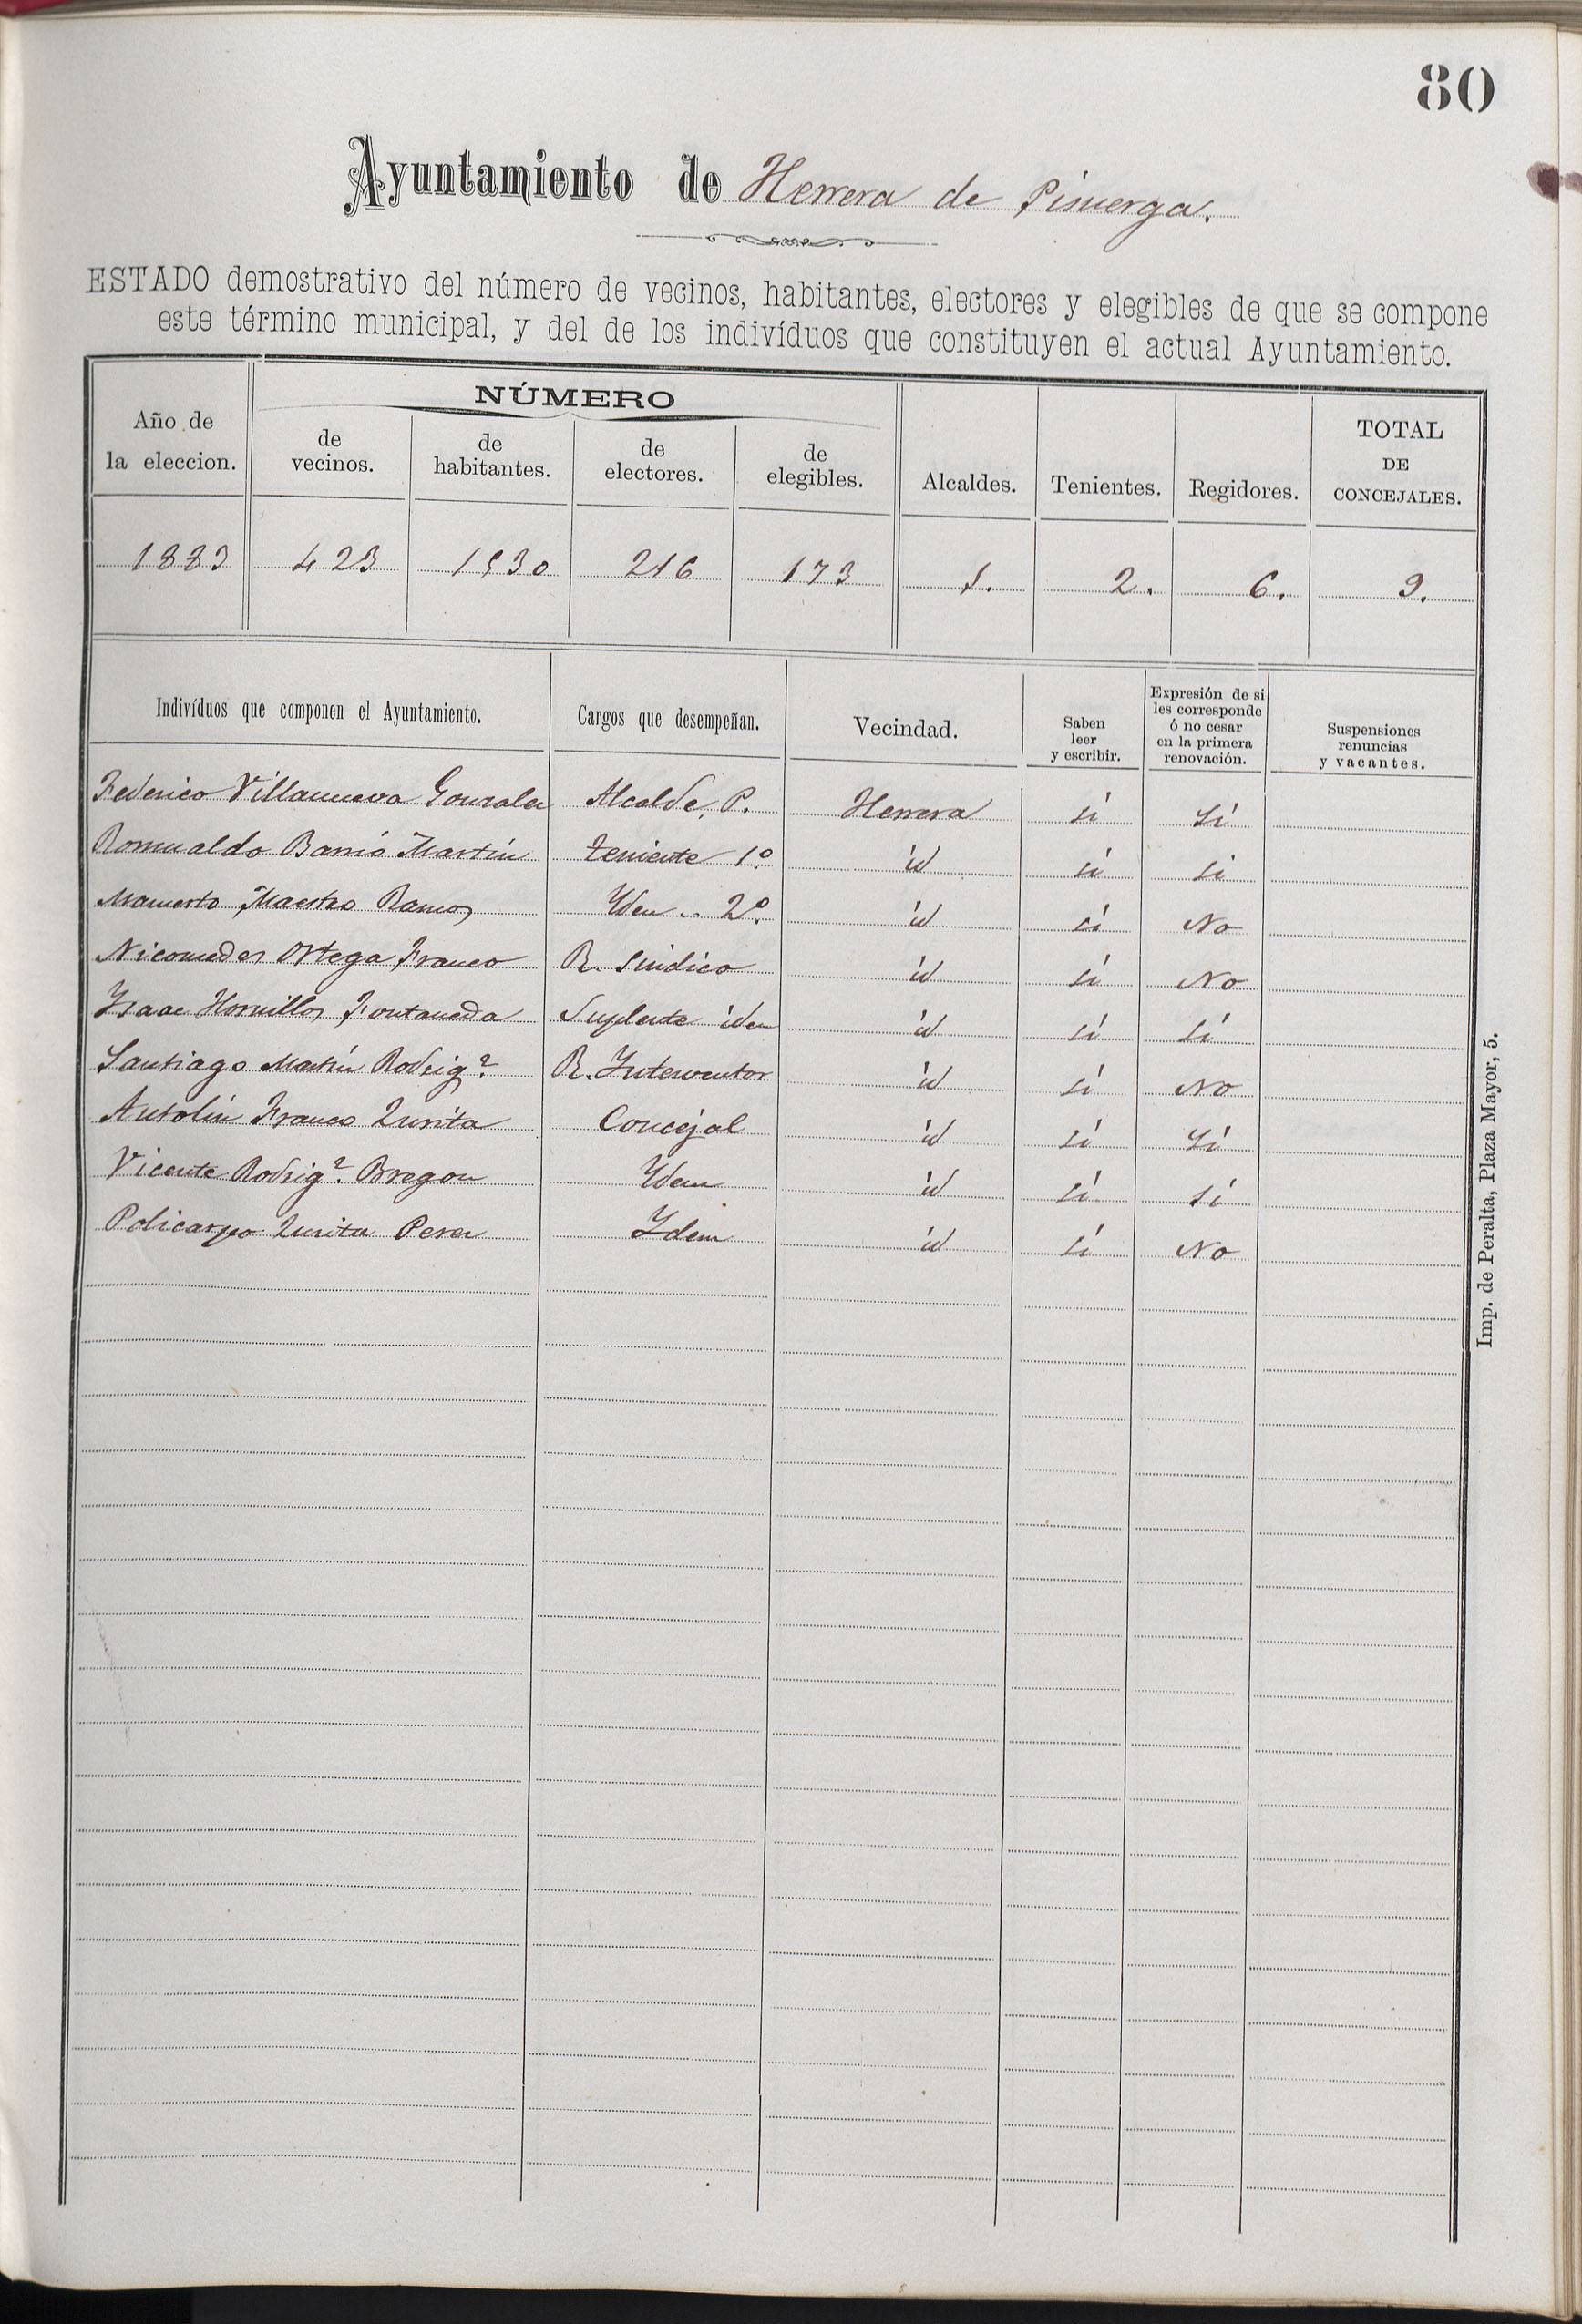 80
Ayuntamiento de Herrera de Pisuerga.
ESTADO demostrativo del número de vecinos, habitantes, electores y elegibles de que se compone
este término municipal, y del de los indivíduos que constituyen el actual Ayuntamiento.
Año de la eleccion. NÚMERO de vecinos. de habitantes. de electores. de elegibles. Alcaldes. Tenientes. Regidores. TOTAL DE CONCEJALES.
1883 423 1530 216 173 1. 2. 6. 9.
Indivíduos que componen el Ayuntamiento. Cargos que desempeñan. Vecindad. Saben leer y escribir. Expresión de si les corresponde ó no cesar en la primera renovación. Suspensiones renuncias y vacantes.
Federico Villanueva Gonzalez Alcalde, P. Herrera si Si
Romualdo Barrio Martin teniente 1º id si si
Mamerto Maestro Ramos Yden .. 2º id si No
Nicomedes Ortega Franco R. Sindico id si No
Ysaac Hornillos Fontaneda Suplente iden id si Si
Santiago Martín Rodrigz. R. Ynterventor id si No
Antolin Franco Zurita Concejal id si Si
Vicente Rodrigz. Bregon Ydem id si Si
Policarpo Zurita Perez Ydem id si No
Imp. de Peralta, Plaza Mayor, 5.